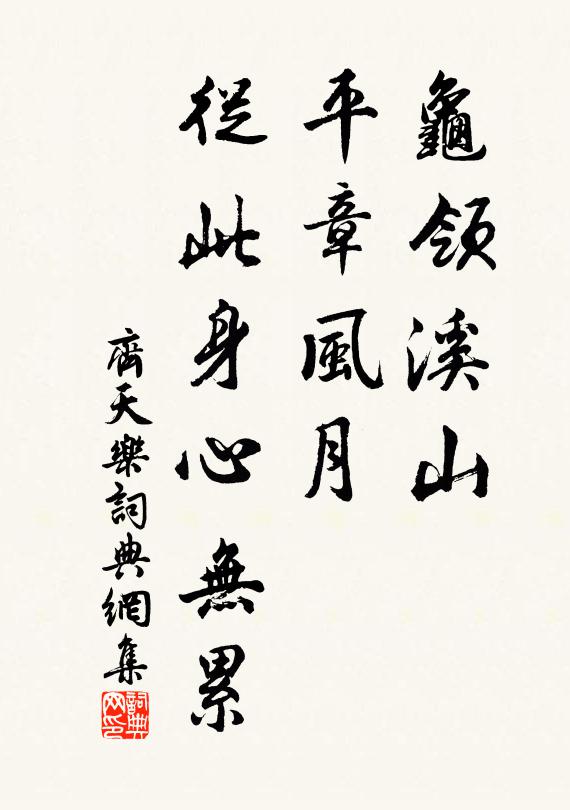 龜領溪山
平章風月
從此身心無累
齊天樂詞典網集
詞典网印